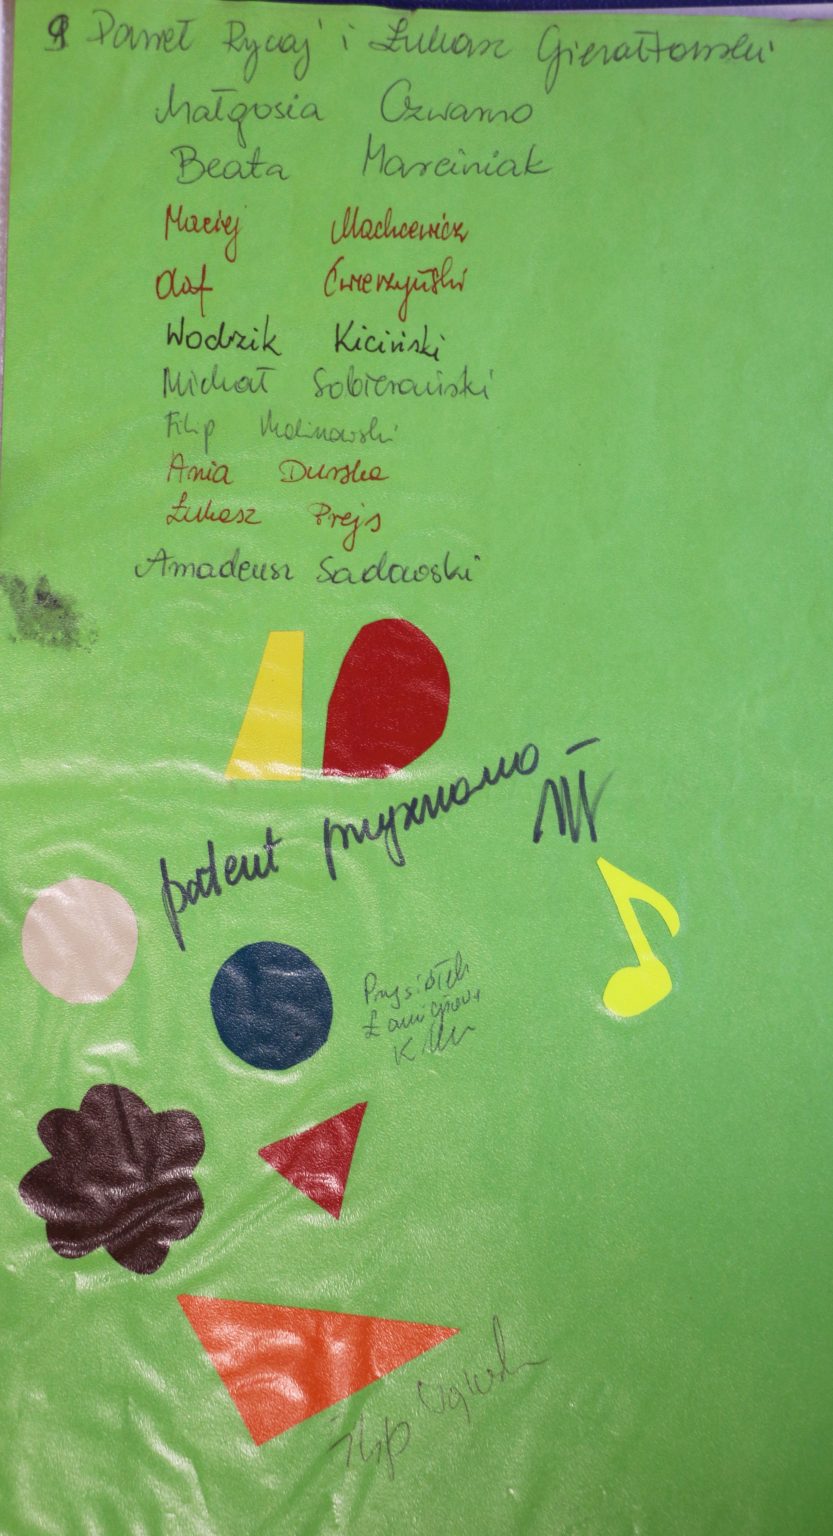 Paweł Rycaj i Łukasz Gierałtowski
Małgosia Czwarno
Beata Marciniak
Maciej Machcewicz
Olaf Ćwierzyński
Wodzik Kiciński
Michał Sobierański
Filip Malinowski
Ania Durska
Łukasz Prejs
Amadeusz Sadowski
patent przyznano